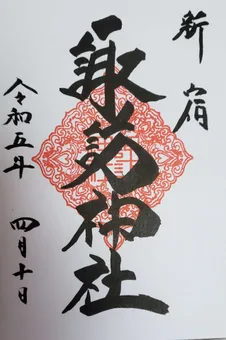 新宿
諏訪神社
令和五年 四月十日